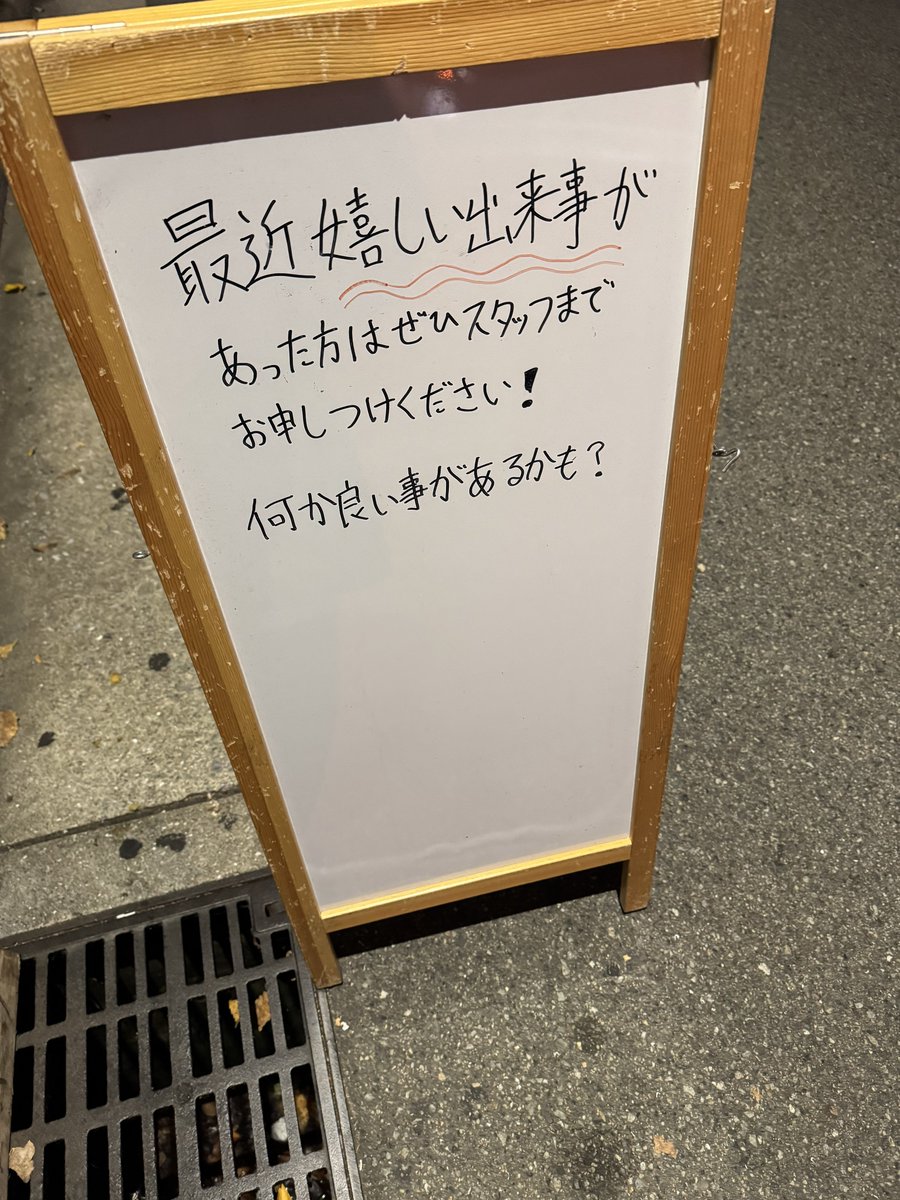 最近嬉しい出来事が
あった方はぜひスタッフまで
お申しつけください!
何か良い事があるかも?